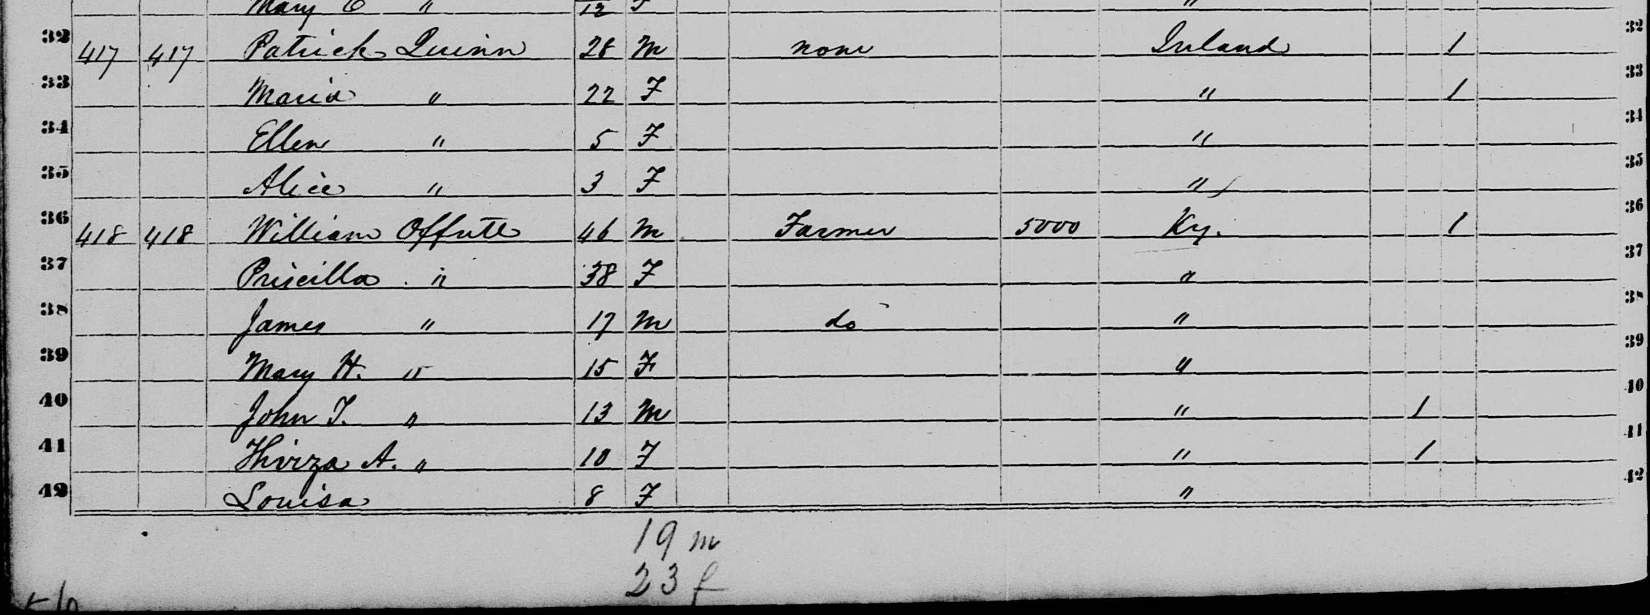 Mary C " /12 F "
32 417 417 Patrick Quinn 28 M none Ireland 1 32
33 Maria " 22 F " 1 33
34 Ellen " 5 F " 34
35 Alice " 3 F " 35
36 418 418 William Offutt 46 M Farmer 5000 Ky. 1 36
37 Priscilla " 38 F " 37
38 James " 17 M do " 38
39 Mary H. " 15 F " 39
40 John T. " 13 M " 1 40
41 A. " 10 F " 1 41
42 Louisa 8 F " 42
19 m
23 f